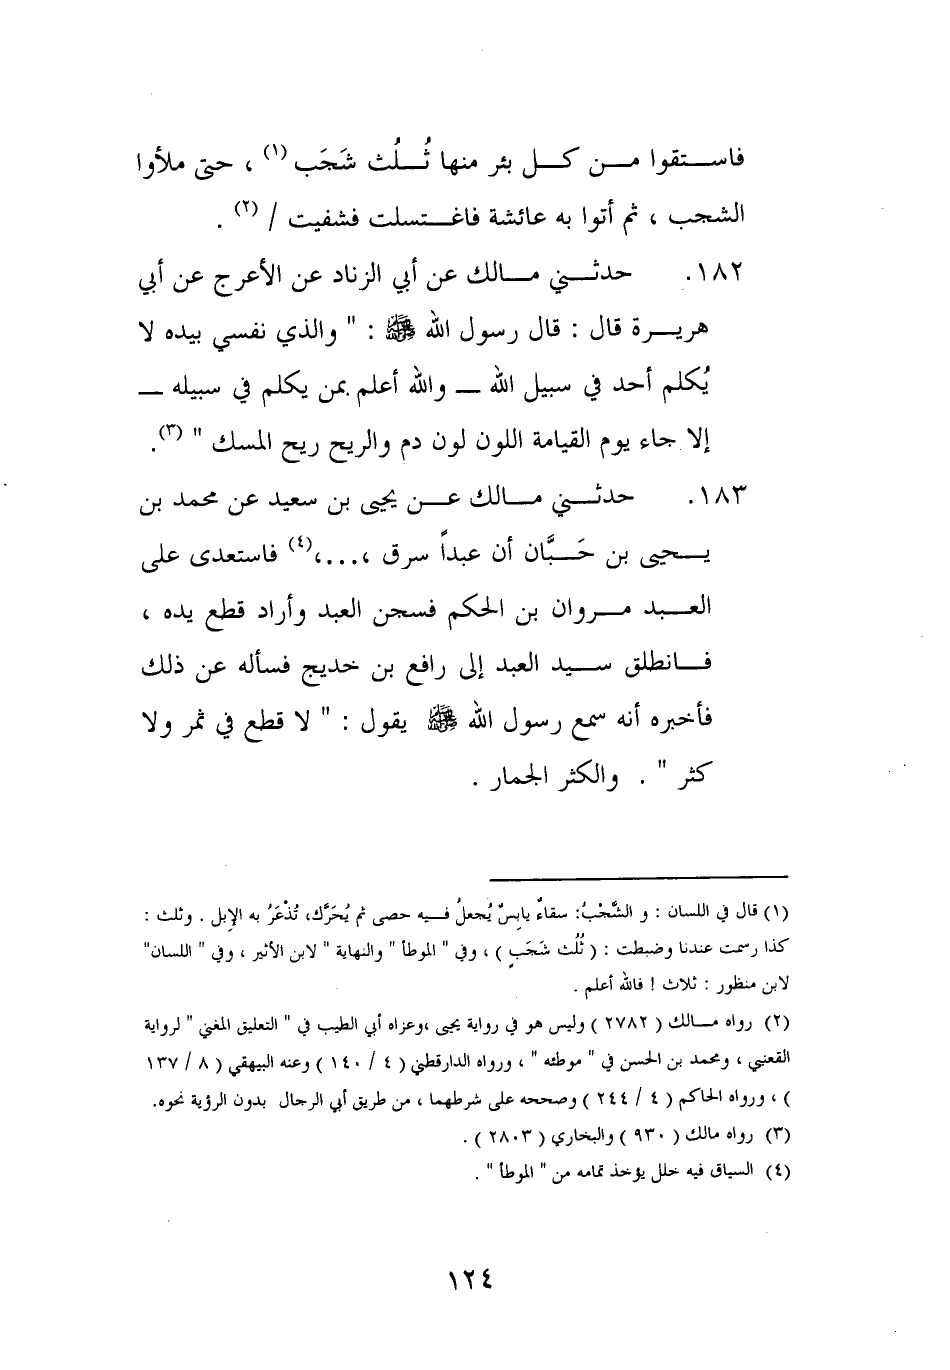 فاستقوا من كل بئر منها ثُلُث شَجَب (١) ، حتى ملأوا
الشجب ، ثم أتوا به عائشة فاغتسلت فشفيت / (٢) .
١٨٢. حدثني مالك عن أبي الزناد عن الأعرج عن أبي
هريرة قال : قال رسول الله ﷺ : " والذي نفسي بيده لا
يُكلم أحد في سبيل الله ــ والله أعلم بمن يكلم في سبيله ــ
إلا جاء يوم القيامة اللون لون دم والريح ريح المسك " (٣).
١٨٣. حدثني مالك عن يحيى بن سعيد عن محمد بن
يحيى بن حَبَّان أن عبداً سرق ،...،(٤) فاستعدى على
العبد مروان بن الحكم فسجن العبد وأراد قطع يده ،
فانطلق سيد العبد إلى رافع بن خديج فسأله عن ذلك
فأخبره أنه سمع رسول الله ﷺ يقول : " لا قطع في ثمر ولا
كثر " . والكثر الجمار .
(١) قال في اللسان : و الشَّجْبُ: سقاءٌ يابسٌ يُجعلُ فيه حصى ثم يُحَرَّك، تُذْعَرُ به الإبل . وثلث :
كذا رسمت عندنا وضبطت : ( ثُلُث شَجَبٍ ) ، وفي " الموطأ " والنهاية " لابن الأثير ، وفي " اللسان"
لابن منظور : ثلاث ! فالله أعلم .
(٢) رواه مالك ( ٢٧٨٢ ) وليس هو في رواية يحيى ،وعزاه أبي الطيب في " التعليق المغني " لرواية
القعنبي ، ومحمد بن الحسن في " موطئه " ، ورواه الدارقطني ( ٤ / ١٤٠ ) وعنه البيهقي ( ٨ / ١٣٧
) ، ورواه الحاكم ( ٤ / ٢٤٤ ) وصححه على شرطهما ، من طريق أبي الرجال بدون الرؤية نحوه.
(٣) رواه مالك ( ٩٣٠ ) والبخاري ( ٢٨٠٣ ) .
(٤) السياق فيه خلل يؤخذ تمامه من " الموطأ " .
١٢٤